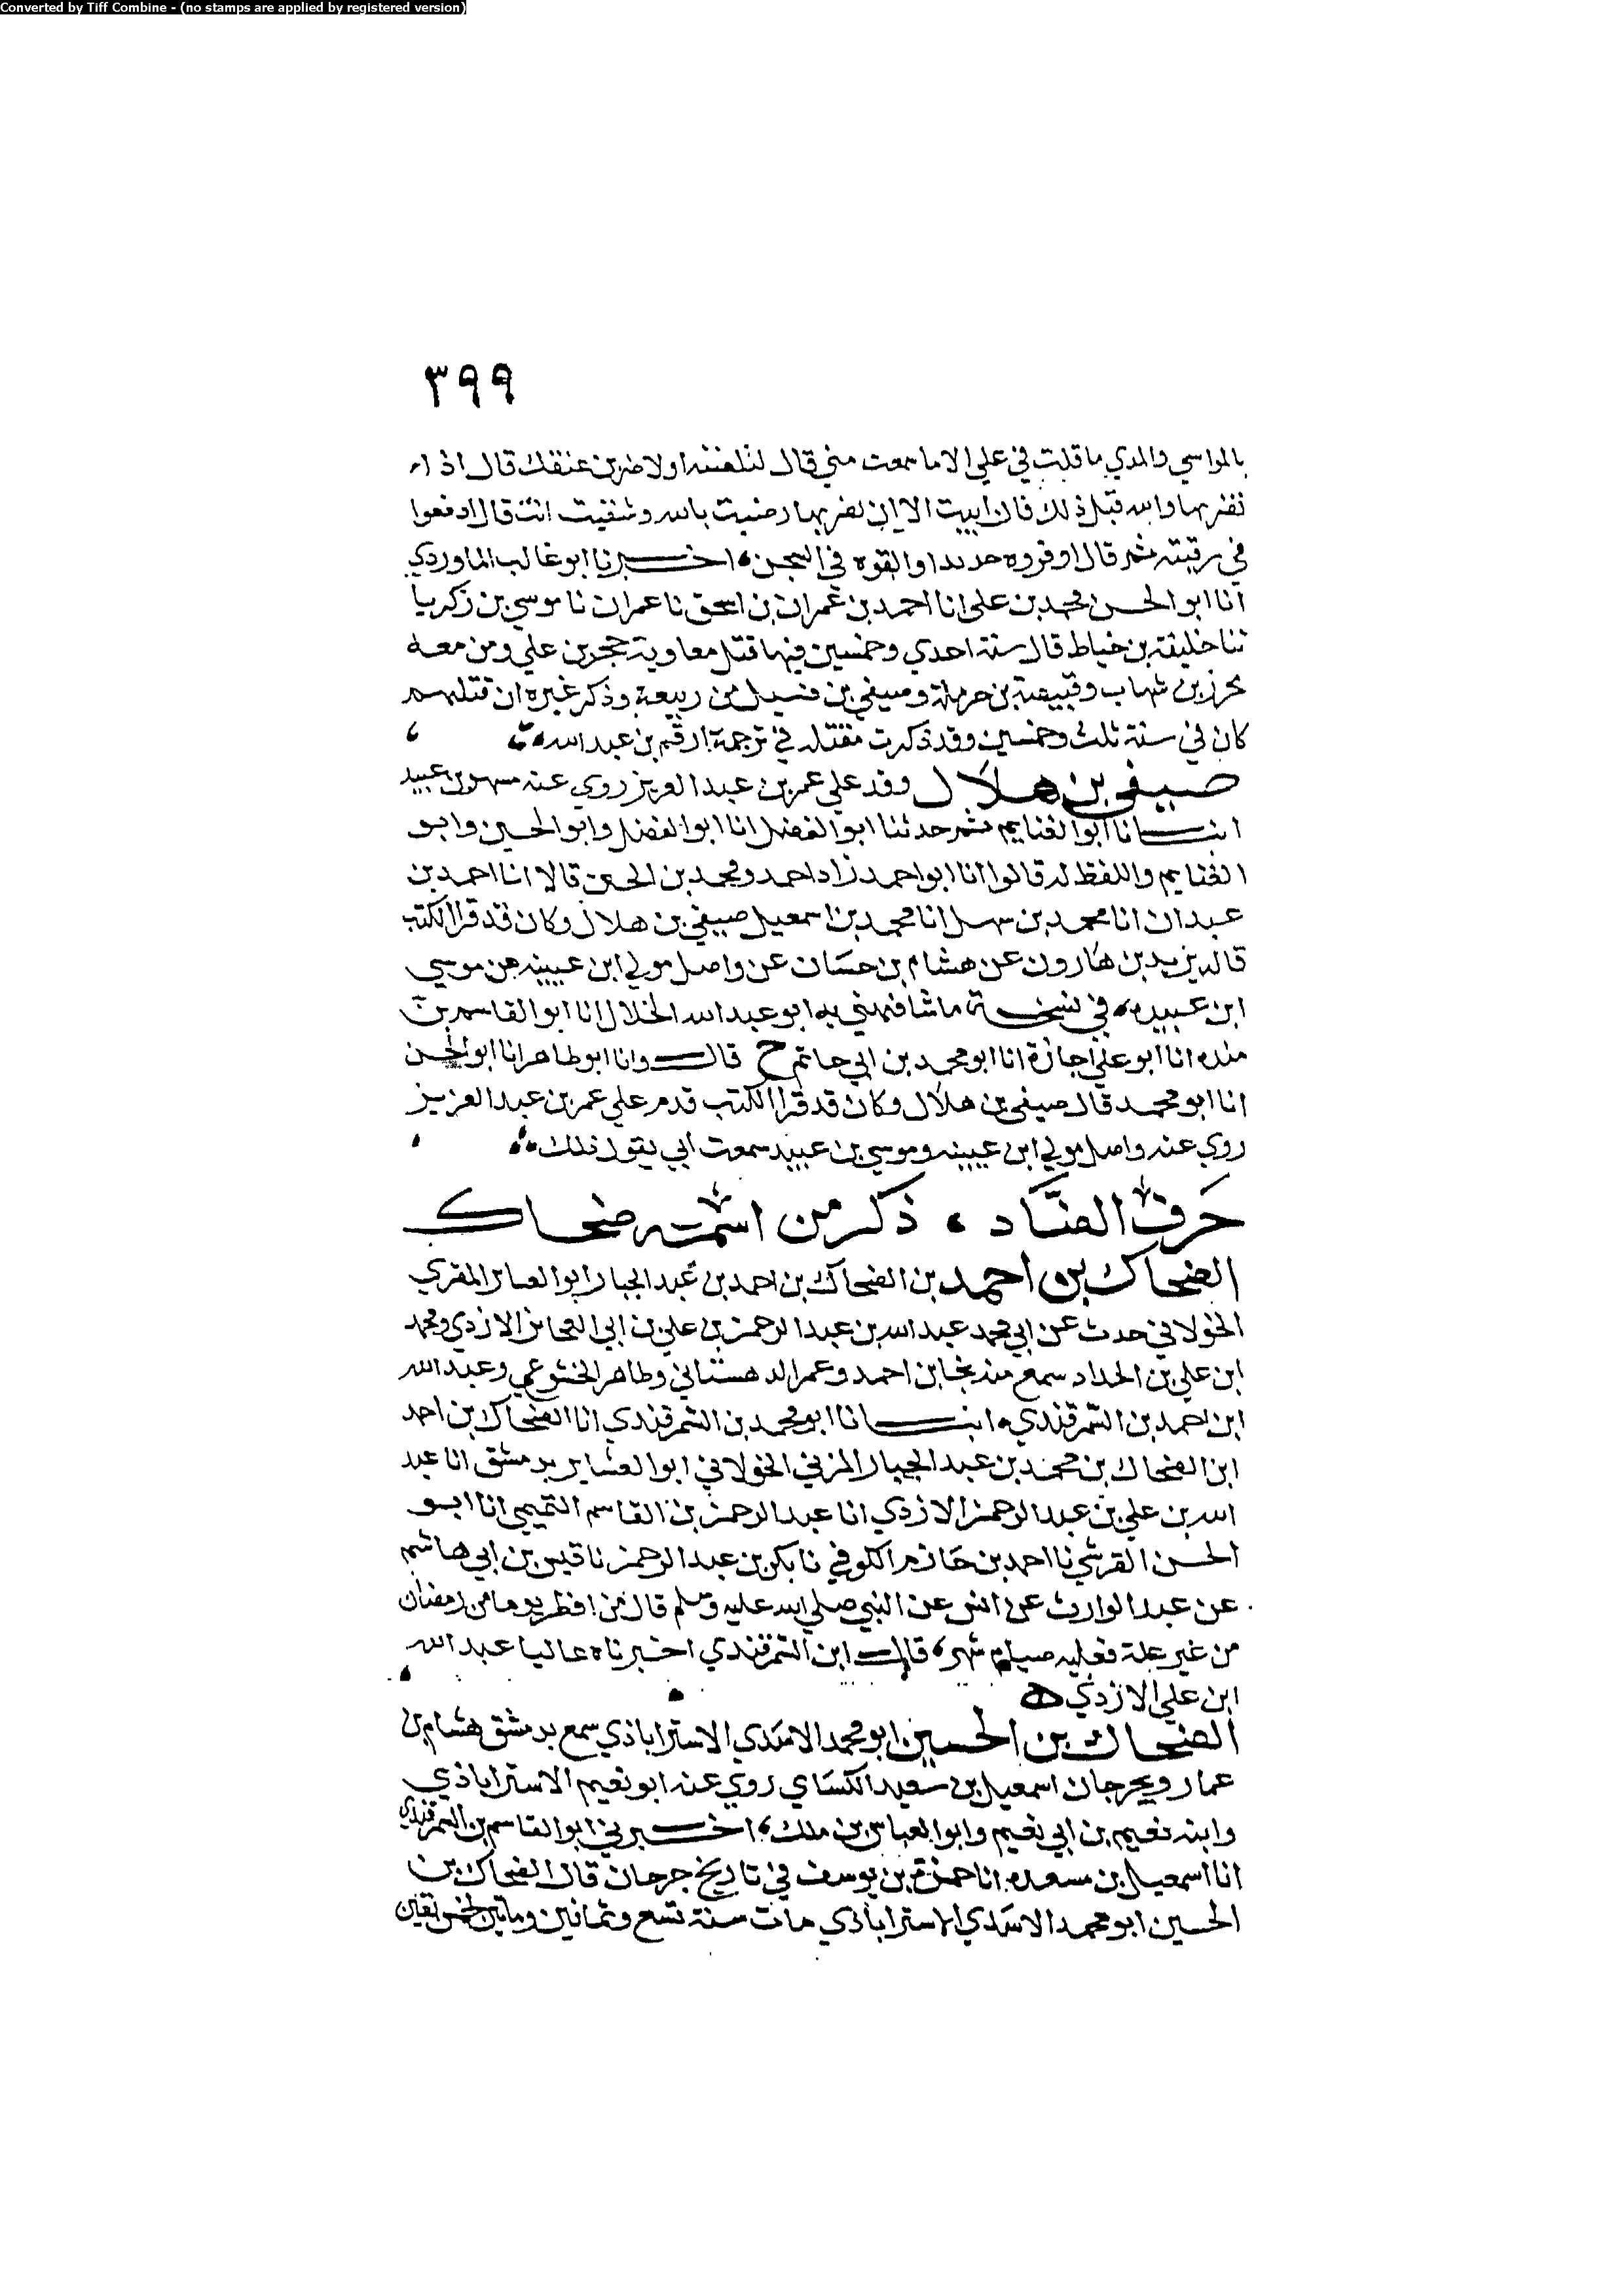 Converted by Tiff Combine - (no stamps are applied by registered version)
٣٩٩
بالمواسي والمدي ما قلت في علي الا ما سمعت مني قال لتلعننه او لاضربن عنقك قال اذا
تضربها والله قبل ذلك فان ابيت الا ان تضربها رضيت بالله وشقيت انت قال ادفعوا
في رقبته ثم قال اوقروه حديدا والقوه في السجن، اخبرنا ابو غالب الماوردي
انا ابو الحسن محمد بن علي انا احمد بن عمران بن اسحق نا عمران نا موسي بن زكريا
ثنا خليفة بن خياط قال سنة احدي وخمسين فيها قتل معاوية حجر بن علي ومن معه
محرز بن شهاب وقبيصة بن حرملة وصيفي بن فسيل من ربيعة وذكر غيره ان قتلهم
كان في سنة ثلث وخمسين وقد ذكرت مقتله في ترجمة ارقم بن عبد الله
صيفي بن هلال وفد علي عمر بن عبد العزيز روي عنه عبيد
انبانا ابو الغنايم ثم حدثنا ابو الفضل انا ابو الفضل وابو الحسين وابو
الغنايم واللفظ له قالوا انا ابو احمد زاد احمد ومحمد بن الحسن قالا انا احمد بن
عبدان انا محمد بن سهل انا محمد بن اسمعيل صيفي بن هلال وكان قد قرا الكتب
قاله يزيد بن هارون عن هشام بن حسان عن واصل مولي ابن عيينه عن موسي
ابن عبيده، في نسخة ما شافهني به ابو عبد الله الخلال انا ابو القاسم بن
منده انا ابو علي اجازة انا ابو محمد بن ابي حاتم ح قال وانا ابو طاهر انا ابو الحسن
انا ابو محمد قال صيفي بن هلال وكان قد قرا الكتب قدم علي عمر بن عبد العزيز
روي عنه واصل مولي ابن عيينه وموسي بن عبيد سمعت ابي يقول ذلك
حرف الضاد، ذكر من اسمه ضحاك
الضحاك بن احمد بن الضحاك بن احمد بن عبد الجبار ابو العساير المقري
الخولاني حدث عن ابي محمد عبد الله بن عبد الرحمن بن علي بن ابي العجائز الازدي ومحمد
ابن علي بن الحداد سمع منه نجا بن احمد وعمر الدهستاني وطاهر الخشوعي وعبد الله
ابن احمد بن السمرقندي، انبانا ابو محمد بن السمرقندي انا الضحاك بن احمد
ابن الضحاك بن محمد بن عبد الجبار المزني الخولاني ابو العشاير بدمشق انا عبد
الله بن علي بن عبد الرحمن الازدي انا عبد الرحمن بن القاسم التميمي انا ابو
الحسن القرشي نا احمد بن حازم الكوفي نا بكر بن عبد الرحمن نا قيس بن ابي هاشم
عن عبد الوارث عن انس عن النبي صلي الله عليه وسلم قال من افطر يوما من رمضان
من غير علة فعليه صيام شهر، قال ابن السمرقندي اخبرناه عاليا عبد الله
ابن علي الازدي ه
الضحاك بن الحسين ابو محمد الاسدي الاستراباذي سمع بدمشق هشام بن
عمار وبجرجان اسمعيل بن سعيد الكسائي روي عنه ابو نعيم الاستراباذي
وابنه نعيم بن ابي نعيم وابو العباس بن ملك، اخبرني ابو القاسم بن السمرقندي
انا اسمعيل بن مسعده انا حمزة بن يوسف في تاريخ جرجان قال الضحاك بن
الحسين ابو محمد الاسدي الاستراباذي مات سنة تسع وثمانين ومايتين لخمس بقين